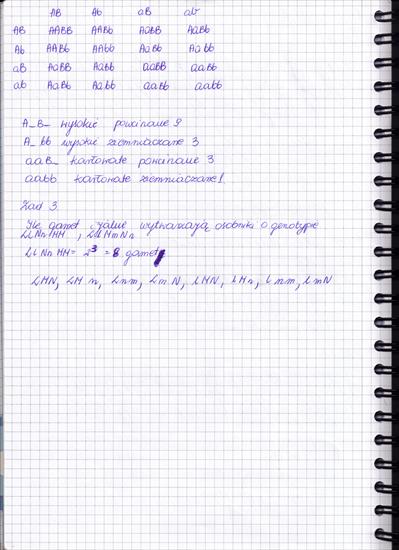 AB Ab aB ab
AB AABB AABb AaBB AaBb
Ab AABb AAbb AaBb Aabb
aB AaBB AaBb aaBB aaBb
ab AaBb Aabb aaBb aabb
A_B_ wysokie powcinane 9
A_bb wysokie ziemniaczane 3
aaB_ karłowate powcinane 3
aabb karłowate ziemniaczane 1
Zad 3
Ile gamet i jakie wytwarzają osobniki o genotypie
LlNnHH, LlHmNn
LlNnHH = 2³ = 8 gamet
LHN, LHn, Lnm, LmN, lHN, lHn, lnm, lmN